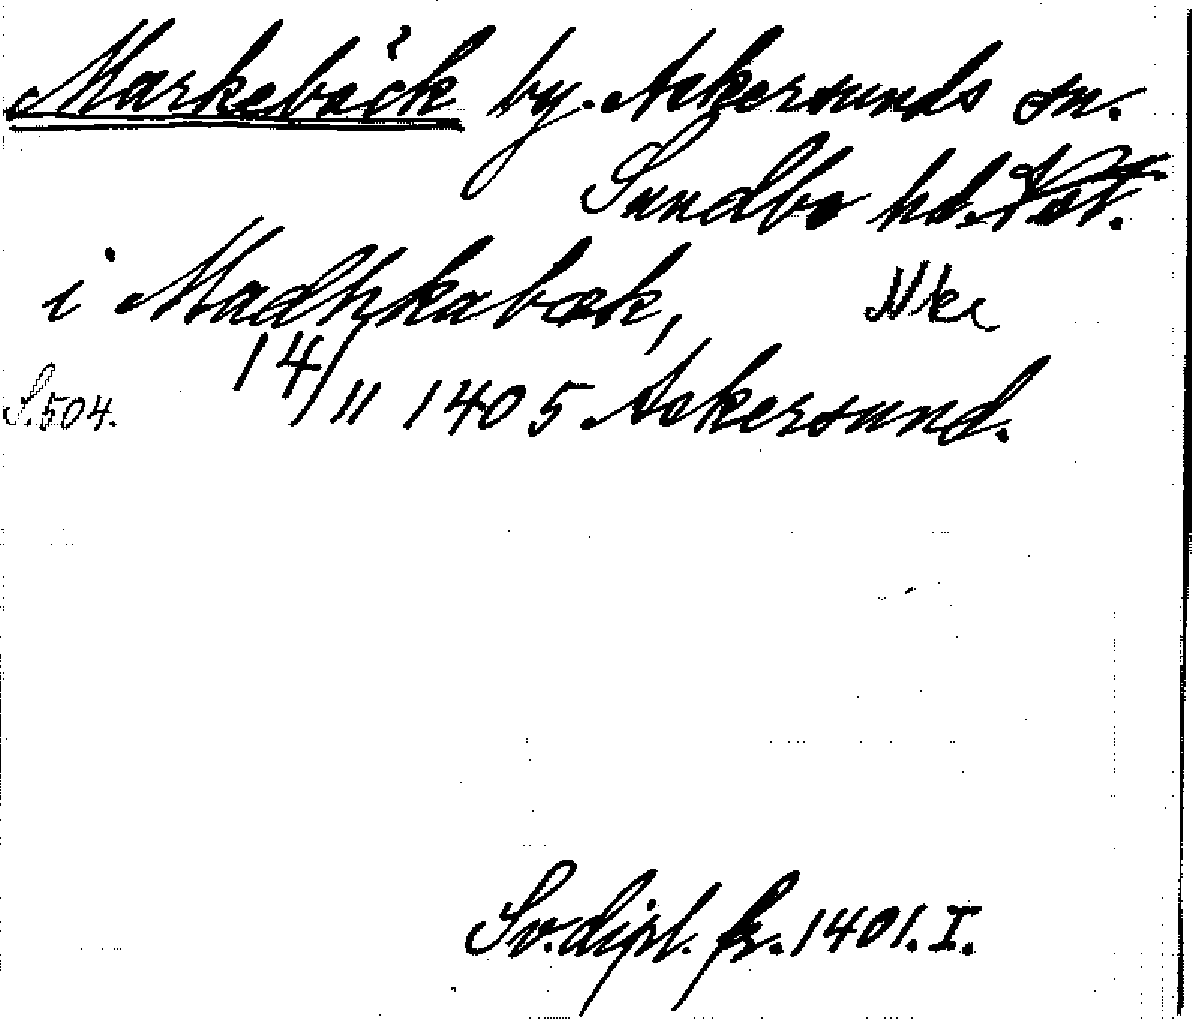 Markebäck by. Askersunds sn.
Sundbo hd.
i Madhkabæk, Nke
14/11 1405 Askersund.
S. 504.
Sv. dipl. fr. 1401. I.